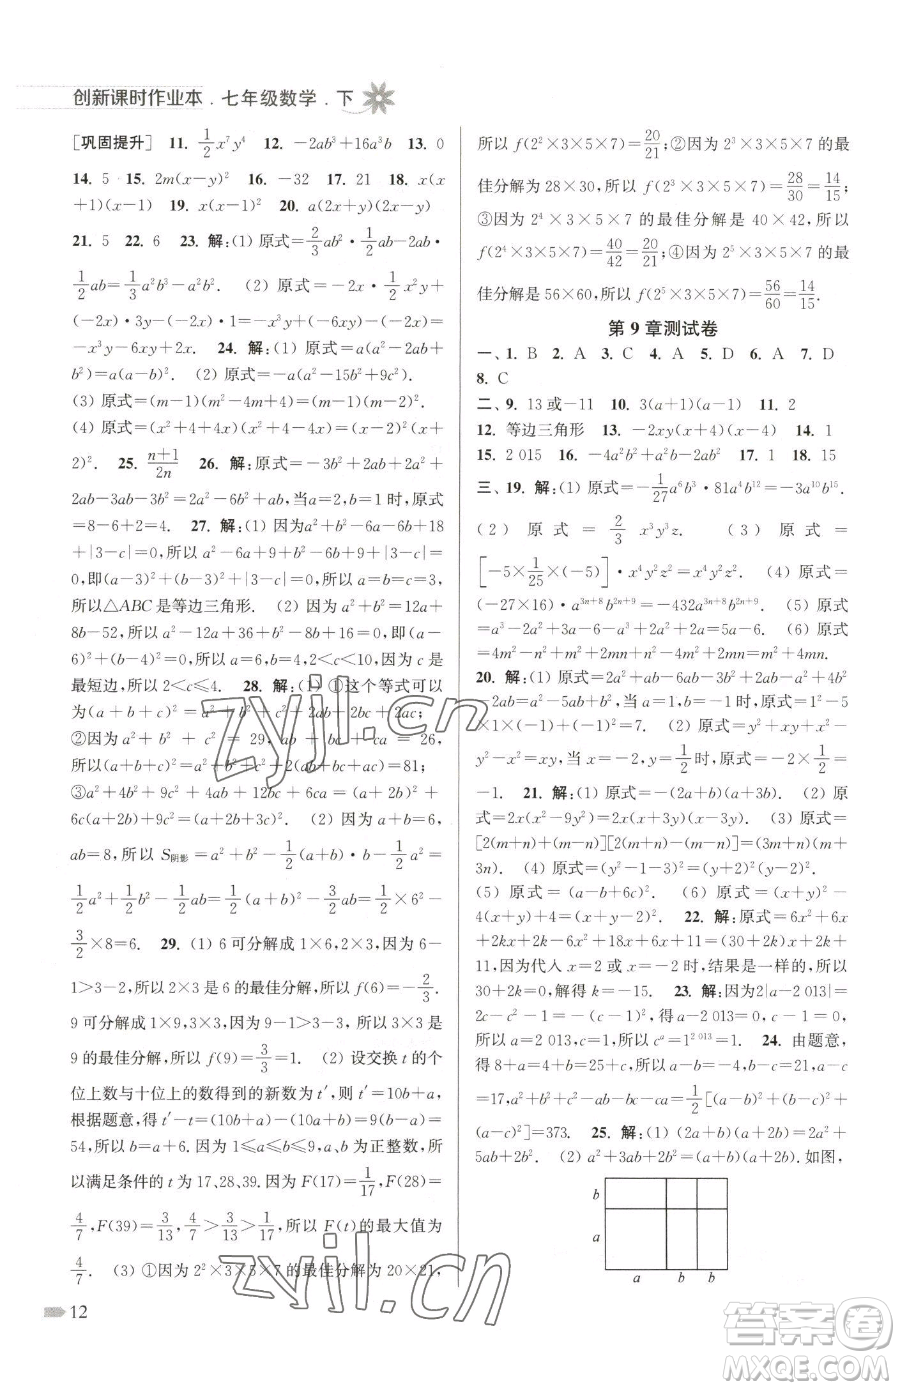 创新课时作业本．七年级数学．下
[巩固提升] 11. 1/2 x⁷y⁴ 12. －2ab³＋16a³b 13. 0
14. 5 15. 2m(x－y)² 16. －32 17. 21 18. x(x
＋1)(x－1) 19. x(x－1)² 20. a(2x＋y)(2x－y)
21. 5 22. 6 23. 解:(1) 原式＝2/3 ab²·1/2 ab－2ab·
1/2 ab＝1/3 a²b³－a²b². (2) 原式＝－2x·1/2 x²y＋
(－2x)·3y－(－2x)·(xy)＝－x³y－6xy＋2x²y＝
－x³y－4x²y. 24. 解:(1) 原式＝a(a²－2ab＋
b²)＝a(a－b)². (2) 原式＝－a(a²－15b²＋9c²).
(3) 原式＝(m－1)(m²－4m＋4)＝(m－1)(m－2)².
(4) 原式＝(x²＋4＋4x)(x²＋4－4x)＝(x＋2)²(x－
2)². 25. n＋1/2n 26. 解:原式＝－3b²＋2a²＋
2ab－3ab－3b²＝2a²－6b²－ab,当a＝b＝1时,原式
＝8－6＋2＝4. 27. 解:(1) 因为a²＋b²－6a－6b＋18
＋|3－c|＝0,所以a²－6a＋9＋b²－6b＋9＋|3－c|
＝0,即(a－3)²＋(b－3)²＋|3－c|＝0,所以a＝b＝c＝3,
所以△ABC是等边三角形. (2) 因为a²＋b²＝12a＋
8b－52,所以a²－12a＋36＋b²－8b＋16＝0,即(a－
6)²＋(b－4)²＝0,所以a＝6,b＝4,2＜c＜10.因为c是
最短边,所以2＜c≤4. 28. 解:(1) ①这个等式可以
为(a＋b＋c)²＝a²＋b²＋c²＋2ab＋2bc＋2ac;
②因为a²＋b²＋c²＝29,ab＋bc＋ac＝26,
所以(a＋b＋c)²＝a²＋b²＋c²＋2(ab＋bc＋ac)＝81;
③a²＋4b²＋9c²＋4ab＋12bc＋6ac＝(a＋2b)²＋
6c(a＋2b)＋9c²＝(a＋2b＋3c)². (2) 因为a＋b＝6,
ab＝8,所以S阴影＝a²＋b²－1/2(a＋b)·b－1/2 a²＝
1/2 a²＋1/2 b²－1/2 ab＝1/2(a＋b)²－3/2 ab＝1/2×6²－
3/2×8＝6. 29. (1) 6可分解成1×6,2×3,因为6－
1＞3－2,所以2×3是6的最佳分解,所以f(6)＝2/3.
9可分解成1×9,3×3,因为9－1＞3－3,所以3×3是
9的最佳分解,所以f(9)＝3/3＝1. (2) 设交换t的个
位上数与十位上的数得到的新数为t′,则t′＝10b＋a,
根据题意,得t′－t＝(10b＋a)－(10a＋b)＝9(b－a)＝
54,所以b＝a＋6.因为1≤a≤b≤9,a,b为正整数,所
以满足条件的t为17、28、39.因为F(17)＝1/17,F(28)＝
4/7,F(39)＝3/13,4/7＞3/13＞1/17,所以F(t)的最大值为
4/7. (3) ①因为2²×3×5×7的最佳分解为20×21,
所以f(2²×3×5×7)＝20/21;②因为2³×3×5×7的最
佳分解为28×30,所以f(2³×3×5×7)＝28/30＝14/15;
③因为2⁴×3×5×7的最佳分解是40×42,所以
f(2⁴×3×5×7)＝40/42＝20/21;④因为2⁵×3×5×7的最
佳分解是56×60,所以f(2⁵×3×5×7)＝56/60＝14/15.
第9章测试卷
一、1. B 2. A 3. C 4. A 5. D 6. A 7. D
8. C
二、9. 13或－11 10. 3(a＋1)(a－1) 11. 2
12. 等边三角形 13. －2xy(x＋4)(x－4) 14. 1
15. 2 015 16. －4a²b²＋a²b 17. 1 18. 15
三、19. 解:(1) 原式＝－1/27 a⁶b³·81a⁴b¹²＝－3a¹⁰b¹⁵.
(2) 原式＝2/3 x³y³z. (3) 原式＝
[－5×1/25×(－5)]·x⁴y⁴z²＝x⁴y⁴z². (4) 原式＝
(－27×16)·a³ⁿ⁺⁸b²ⁿ⁺⁹＝－432a³ⁿ⁺⁸b²ⁿ⁺⁹. (5) 原式＝
a³－2a²＋3a－a²＋2a－3＝a³－3a²＋5a－3. (6) 原式
＝4m²－n²－2mn＋n²＝4m²－2mn.
20. 解:(1) 原式＝2a²－4ab－ab＋2b²－a²－b²＋2ab
－2ab＝a²－5ab＋b²,当a＝－1,b＝1时,原式＝1²－5
×1×(－1)＋(－1)²＝7. (2) 原式＝y²＋xy＋x²－
y²－x²＝xy,当x＝－2,y＝1/2时,原式＝－2×1/2＝
－1. 21. 解:(1) 原式＝－(2a＋b)(a＋3b). (2) 原
式＝2x(x²－9y²)＝2x(x＋3y)(x－3y). (3) 原式＝
[2(m＋n)＋(m－n)][2(m＋n)－(m－n)]＝(3m＋n)(m＋
3n). (4) 原式＝(y²－1－3)²＝(y＋2)²(y－2)².
(5) 原式＝(a－b＋6c)². (6) 原式＝(x＋y)²－
4(x＋y)＋4＝(x＋y－2)². 22. 解:原式＝6x²＋6x
＋24x＋2kx＋2k－6x²＋6x＋5x＋5＝(30＋2k)x＋
2k＋5.因为代人x＝2与x＝2时,结果是一样的,所以
30＋2k＝0,解得k＝－15. 23. 解:因为2|a－2 013|＝
2c－c²－1,所以|a－2 013|＝0,c－1＝0,
所以a＝2 013,c＝1,所以cᵃ＝1²⁰¹³＝1. 24. 由题意,
得8a＋20＝9b＋16＝4c＋25,所以a－b＝4,b－c＝21,
c－a＝－25,所以a²＋b²＋c²－ab－bc－ca＝1/2[(a－b)²＋
(a－c)²＋(b－c)²]＝373. 25. 解:(1) (2a＋b)(a＋2b)＝2a²＋
5ab＋2b². (2) a²＋3ab＋2b²＝(a＋b)(a＋2b).如图,
b
a
a b b
12
zyjl.cn
zyjl.cn
答案圈
MXQE.COM